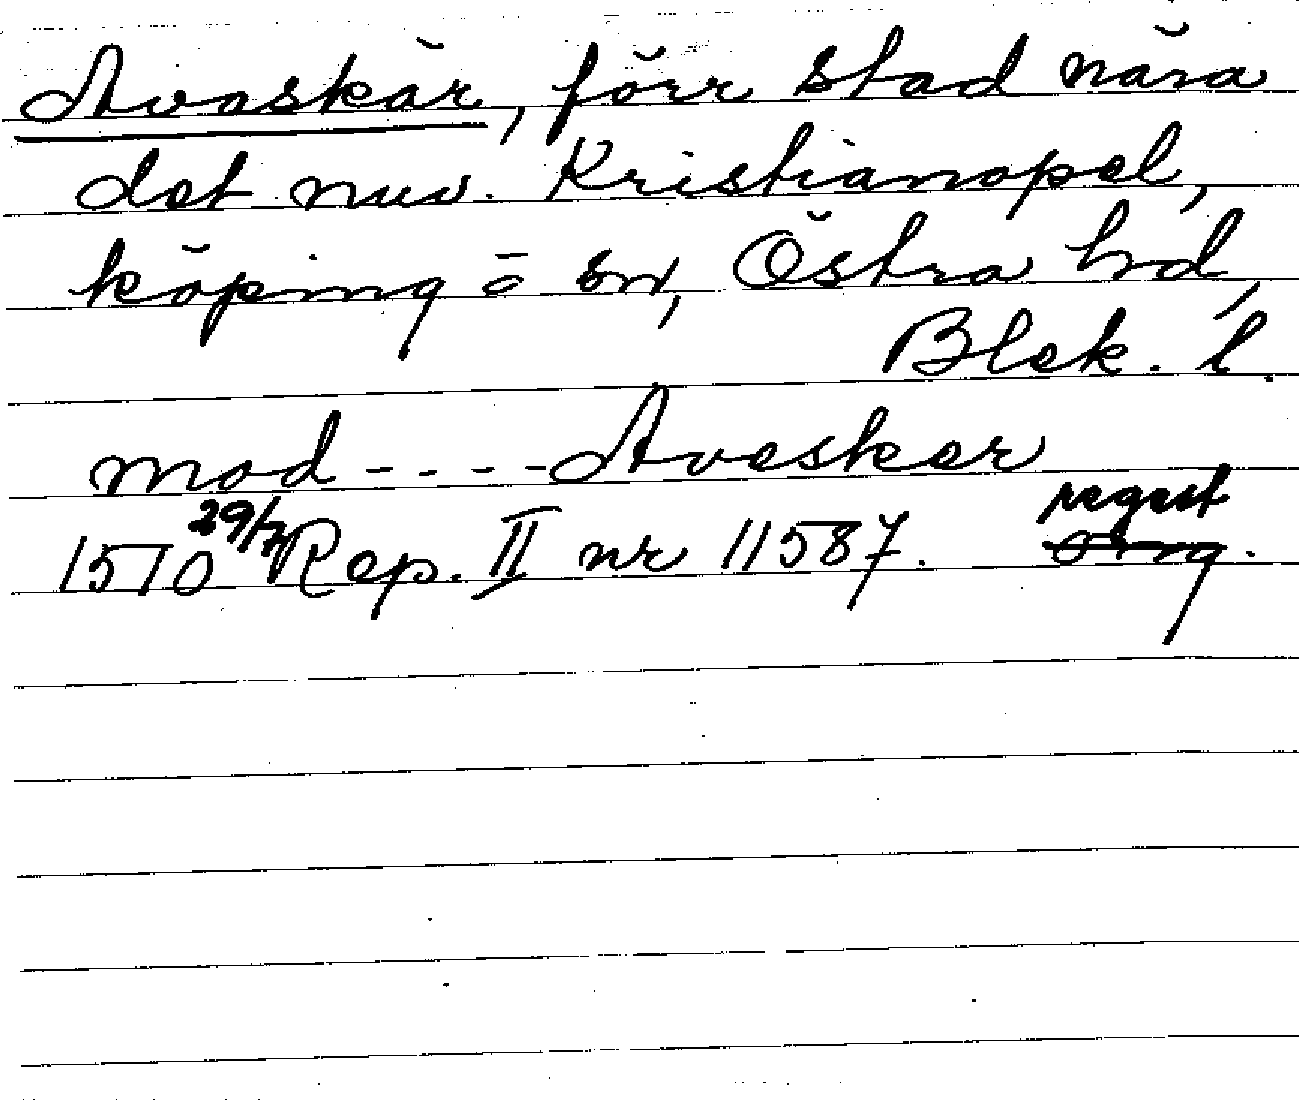 Avaskär, förr stad nära
det nuv. Kristianopel,
köping o sn, Östra hd,
Blek. l.
mod - - - - Avesker
1510 29/7 Rep. II nr 11587. regest
orig.